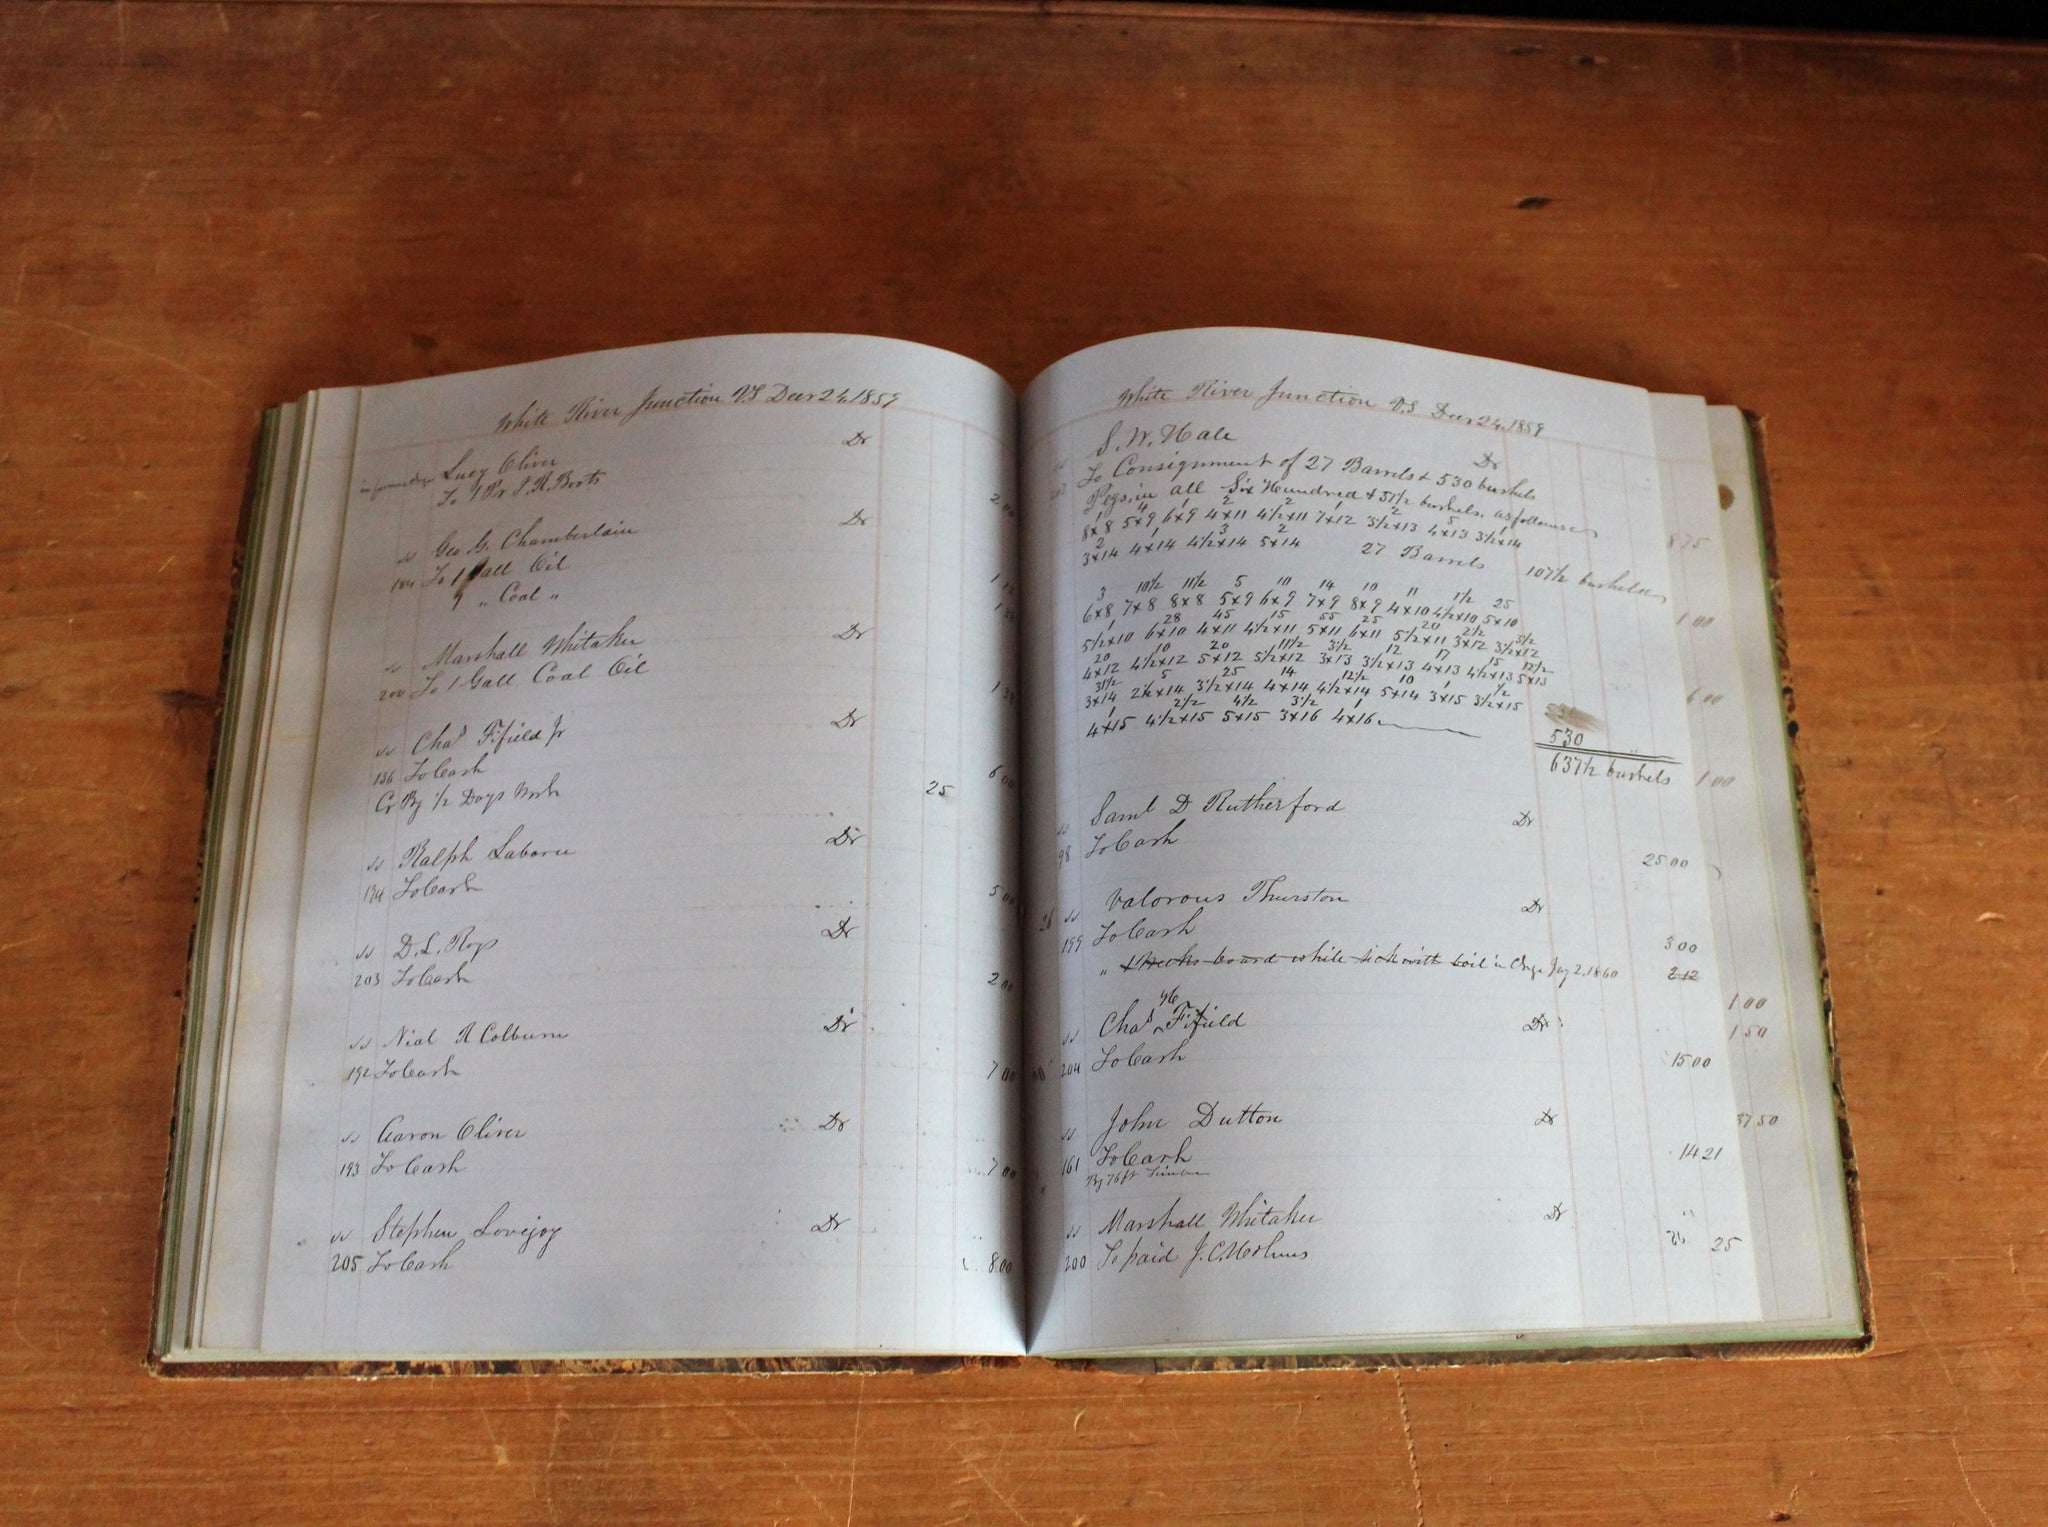 White River Junction Vt Decr 24, 1859
Dr
Lucy Oliver
To 1 Pr Boots 2 00
Dr
Geo G. Chamberlain
184 To 1 Gall Oil
" Coal "
Dr
Marshall Whitaker
200 To 1 Gall Coal Oil
Dr
Chas Fifield Jr
136 To Cash 6 00
Cr By 1/2 Days Work 25
Dr
Ralph
134 To Cash 5 00
Dr
D. L. Roys
203 To Cash 2 00
Dr
Nial R Colburn
192 To Cash 7 00
Dr
Aaron Oliver
193 To Cash 7 00
Dr
Stephen Lovejoy
205 To Cash 8 00
White River Junction Vt Decr 24, 1859
S. W. Hale
Dr
To Consignment of 27 Barrels & 530 bushels
Pegs, in all Six Hundred & 37 1/2 bushels. as follows
1 4 1 2 2 1 2 5 1
8x8 5x9 6x9 4x11 4 1/2x11 7x12 3 1/2x13 4x13 3 1/2x14
2 1 3 2
3x14 4x14 4 1/2x14 5x14 27 Barrels 107 1/2 bushels
3 10 1/2 11 1/2 5 10 14 10 11 1 1/2 25
6x8 7x8 8x8 5x9 6x9 7x9 8x9 4x10 4 1/2x10 5x10
1 28 45 15 55 25 20 2 1/2 3 1/2
5 1/2x10 6x10 4x11 4 1/2x11 5x11 6x11 5 1/2x11 3x12 3 1/2x12
20 10 20 11 1/2 3 1/2 12 17 15 12 1/2
4x12 4 1/2x12 5x12 5 1/2x12 3x13 3 1/2x13 4x13 4 1/2x13 5x13
31 1/2 5 25 14 12 1/2 10 1 1/2
3x14 2 1/2x14 3 1/2x14 4x14 4 1/2x14 5x14 3x15 3 1/2x15
1 2 1/2 4 1/2 3 1/2 1
4x15 4 1/2x15 5x15 3x16 4x16
530
637 1/2 bushels
Saml D Rutherford
Dr
98 To Cash 25 00
Valorous Thurston
Dr
199 To Cash 3 00
" Weeks board while sick with boil in Chrge Jay 2, 1860 2 12
Chas Fifield
Dr
204 To Cash 15 00
John Dutton
Dr
161 To Cash 14 21
By 76 ft
Marshall Whitaker
Dr
200 To paid J. C. Holmes 25
8 75
1 00
6 00
1 00
1 00
1 50
37 50